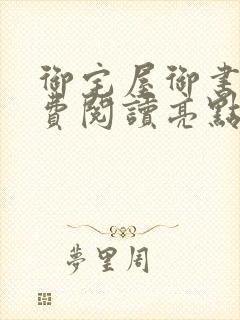 御宅屋御書
費閱讀亮點
夢里周